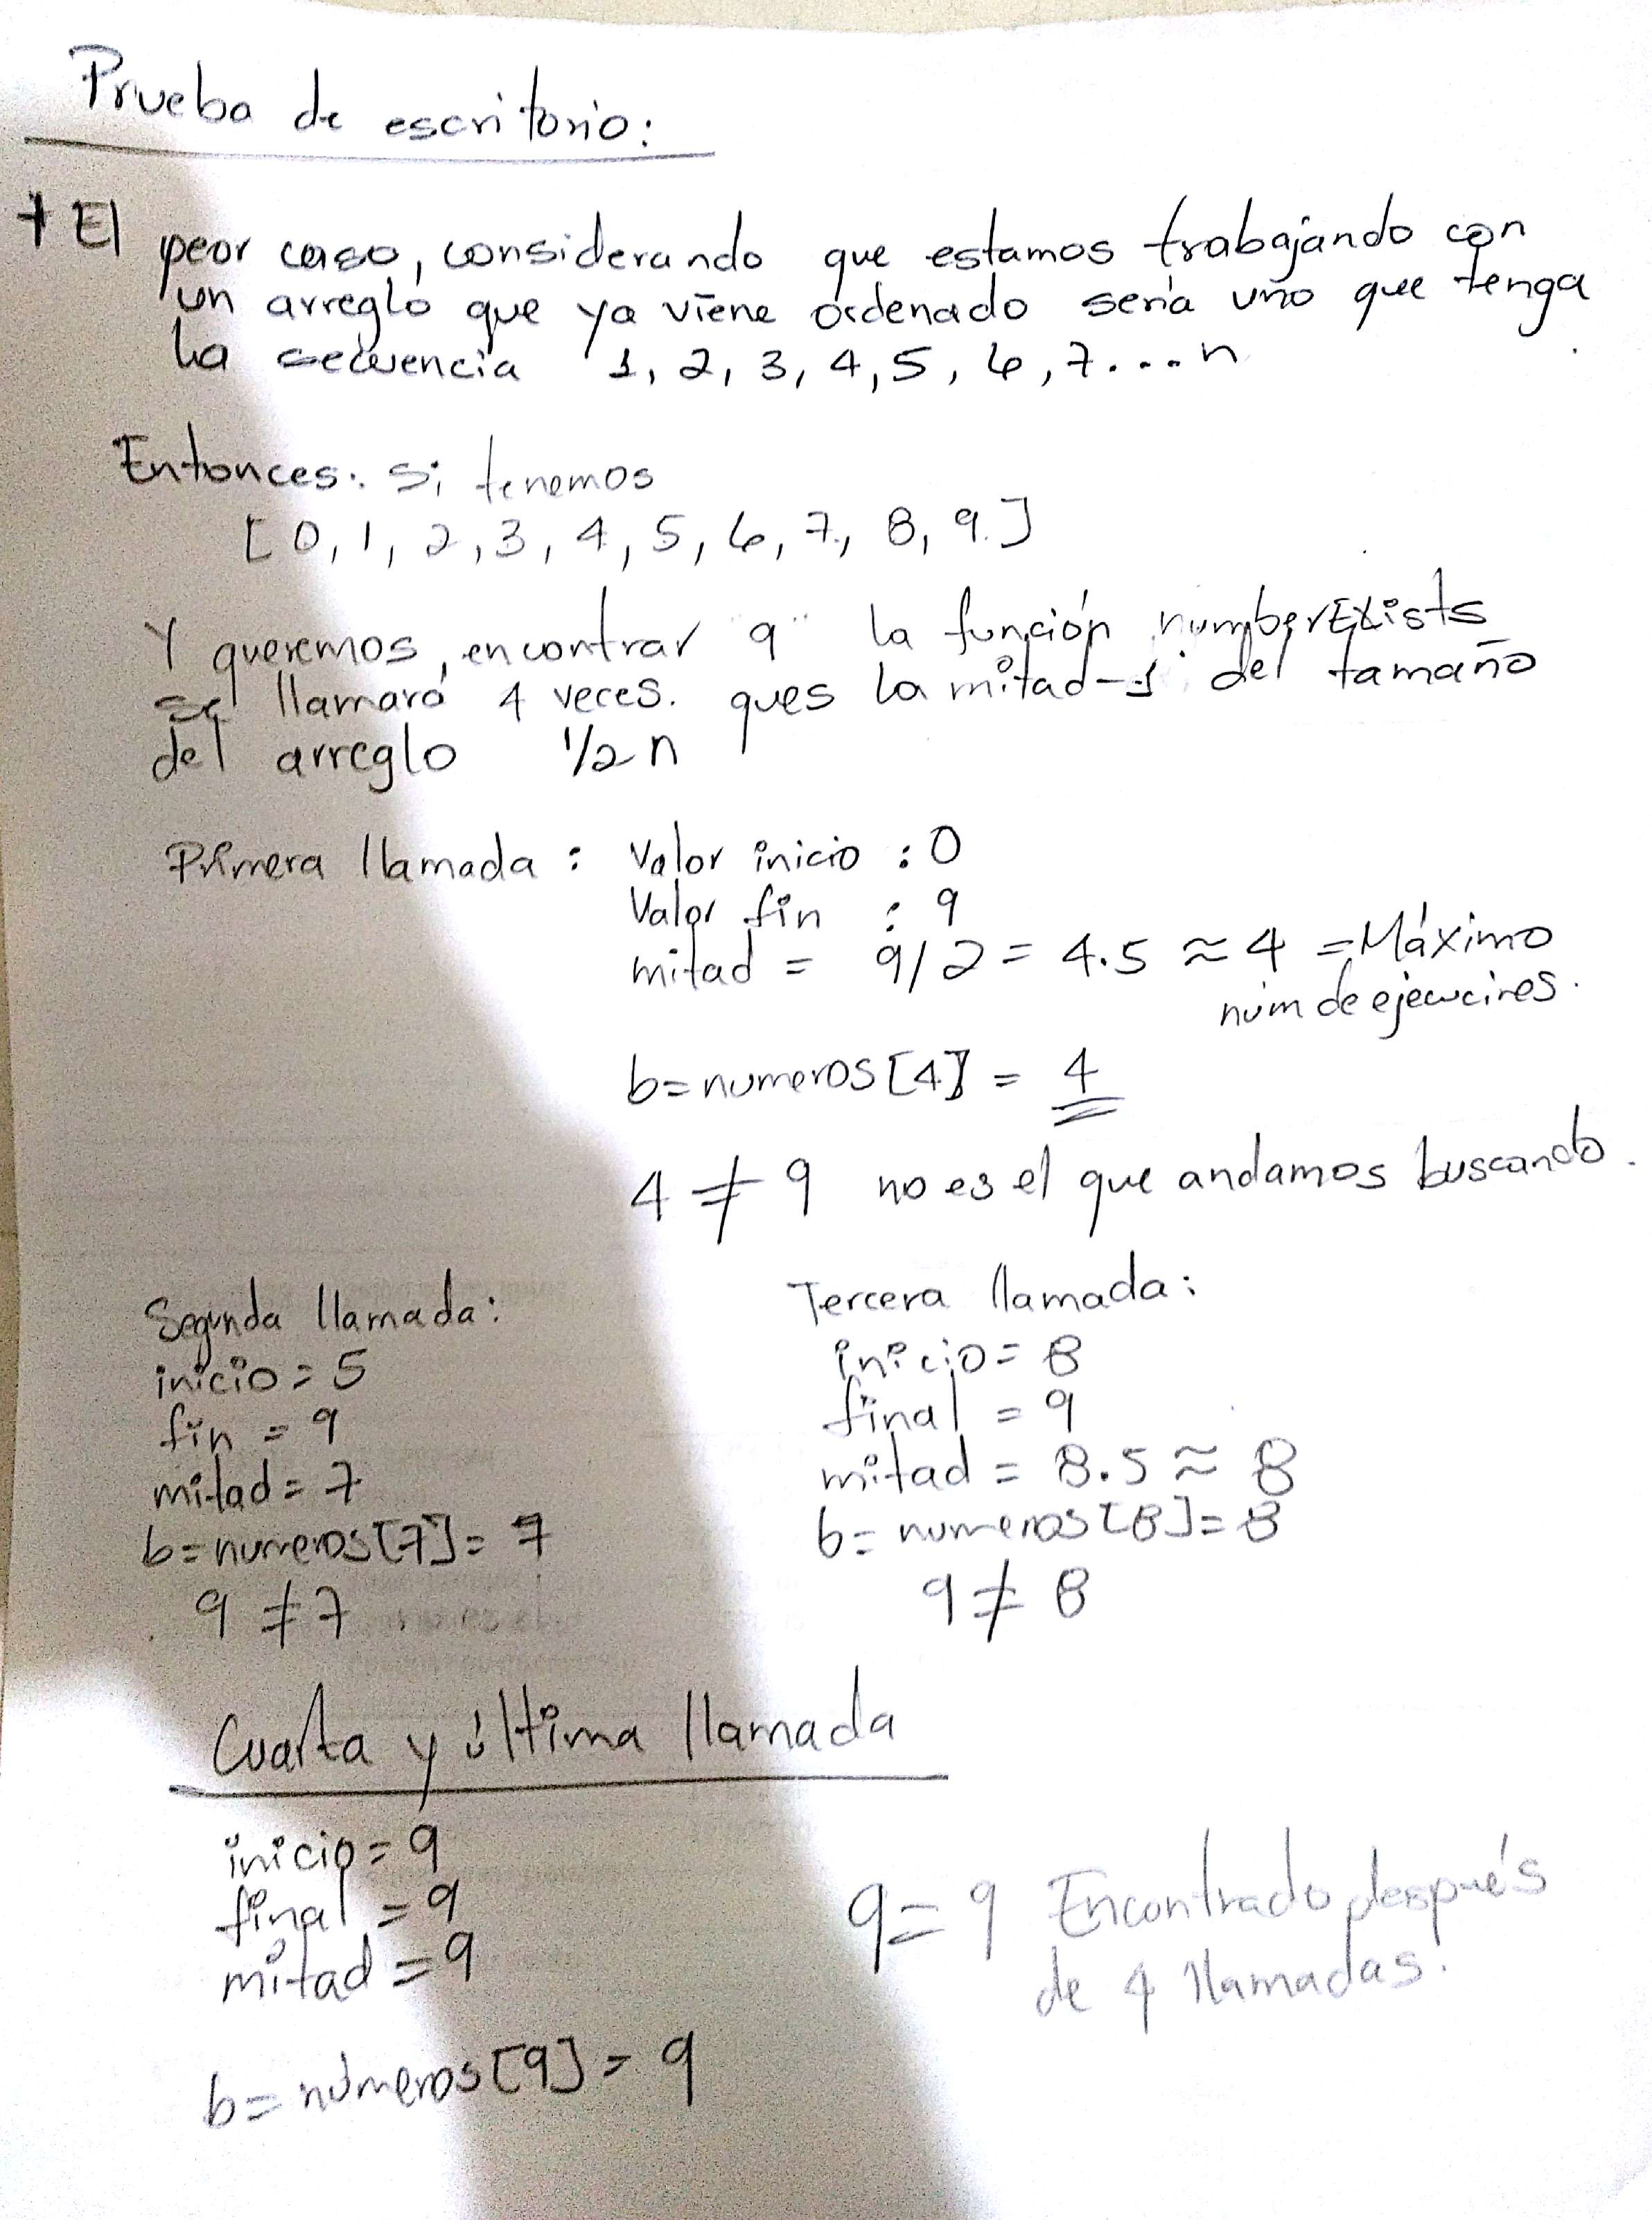 Prueba de escritorio:
+ El peor caso, considerando que estamos trabajando con
un arreglo que ya viene ordenado sería uno que tenga
La secuencia 1, 2, 3, 4, 5, 6, 7...n
Entonces: si tenemos
[0, 1, 2, 3, 4, 5, 6, 7, 8, 9]
Y queremos encontrar "9" la función numberExists
se llamará 4 veces. ques la mitad-1 del tamaño
del arreglo 1/2 n
Primera llamada: Valor inicio : 0
Valor fin : 9
mitad = 9/2 = 4.5 ≈ 4 = Máximo
núm de ejecucines.
b=numeros[4] = 4
4 ≠ 9 no es el que andamos buscando.
Segunda llamada:
inicio = 5
fin = 9
mitad = 7
b=numeros[7] = 7
9 ≠ 7
Tercera llamada:
inicio = 8
final = 9
mitad = 8.5 ≈ 8
b= numeros[8]= 8
9 ≠ 8
Cuarta y última llamada
inicio = 9
final = 9
mitad = 9
b= números[9] = 9
9=9 Encontrado después
de 4 llamadas.